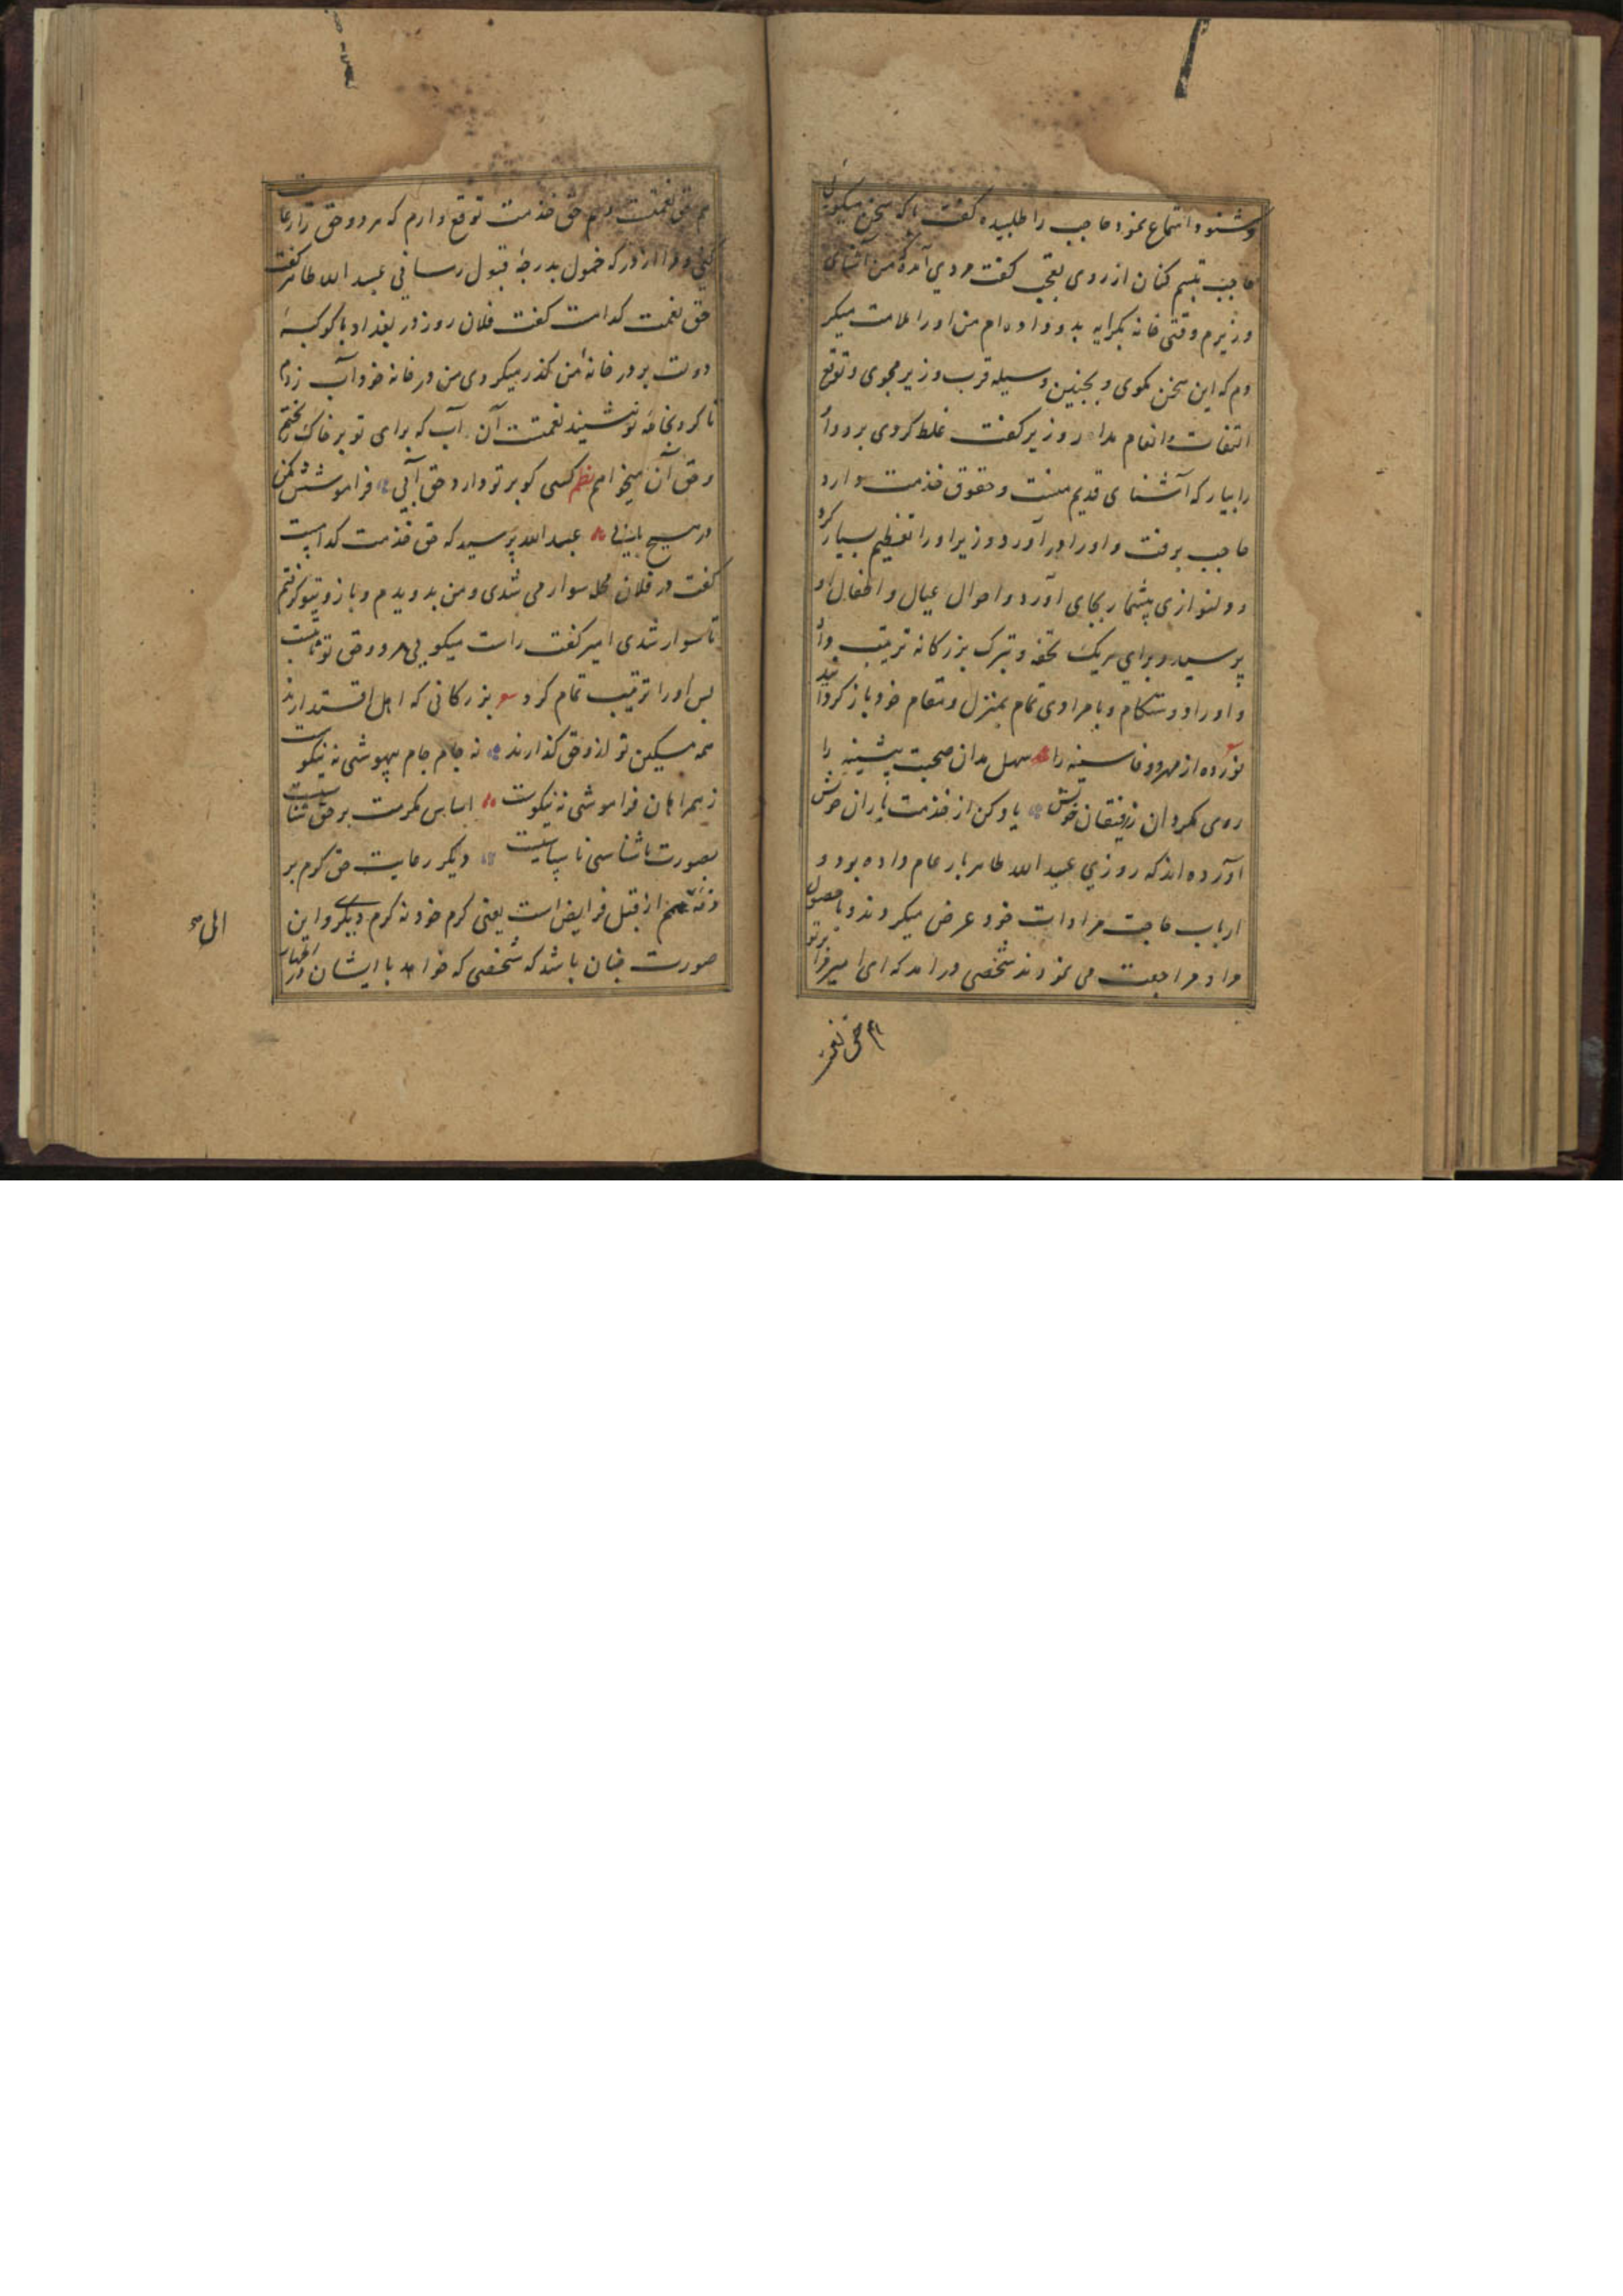 وشنود استماع نمود حاجب را طلبیده گفت با که سخن میکویی
حاجب تبسم کنان از روی تعجب کفت مردی آمده من آشنای
وزیرم وقتی خانه بکرایه بدو داده ام من او را ملامت میکر
دم که این سخن مکوی و بچنین وسیله قرب وزیر مجوی و توقع
التفات و انعام مدار وزیر کفت غلط کردی برو و او
را بیار که آشنای قدیم منست و حقوق خدمت دارد
حاجب برفت و او را در آورد و وزیر او را تعظیم بسیار کرد
و دلنوازی بیشمار بجای آورد و احوال عیال و اطفال او
پرسید و برای هریک تحفه و تبرک بزرکانه ترتیب داد
و او را دوستکام و با مرادی تمام بمنزل و مقام خود باز کردانید
ای نوزده از مهر و وفا سینه را سهل مدان صحبت پیشینه را
روی مکردان ز رفیقان خویش یاد کن از خدمت یاران خویش
آورده اند که روزی عبد الله طاهر بار عام داده بود و
ارباب حاجت مرادات خود عرض میکردند و با حصول
مراد مراجعت می نمودند شخصی درامد که ای امیر مرا بر تو
هم حق نعمت
هم حق نعمت و هم حق خدمت توقع دارم که هر دو حق را رعایت
کنی و مرا از درکه خمول بدرجهٔ قبول رسانی عبد الله طاهر کفت
حق نعمت کدامست کفت فلان روز در بغداد با کوکبهٔ
دولت بر در خانهٔ من کذر میکردی من در خانه خود آب زدم
تا کرد بجامهٔ تو ننشیند نعمت آن آب که برای تو بر خاک ریختم
و حق آن میخواهم نظم کسی کو بر تو دارد حق آبی فراموشش مکن
در هیچ بابی عبد الله پرسید که حق خدمت کدامست
کفت در فلان محل سوار می شدی و من بدویدم و بازوی تو کرفتم
تا سوار شدی امیر کفت راست میکویی هر دو حق تو ثابتست
پس او را ترتیب تمام کرد بزرکانی که اهل اقتدارند
همه مسکین نواز و حق کذارند نه جام جام بیهوشی نه نیکوست
ز همراهان فراموشی نه نیکوست اساس مکرمت بر حق شناسیست
بصورت ناشناسی ناسپاسیست دیکر رعایت حق کرم بر
ذمهٔ همم از قبیل فرایض است یعنی کرم خود نه کرم دیکری و این
صورت چنان باشد که شخصی که خواهد با ایشان در اظهار